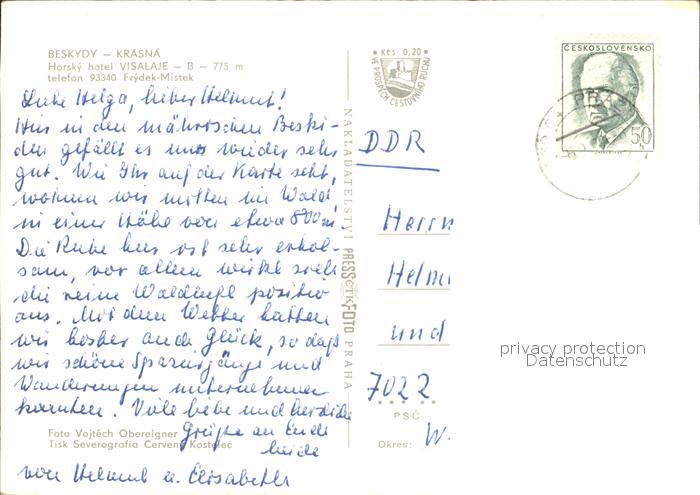 BESKYDY – KRÁSNÁ
Horský hotel VISALAJE – B – 775 m
telefon 93340 Frýdek-Místek
Liebe Helga, lieber Helmut!
Hier in den mährischen Beski-
den gefällt es uns wieder sehr
gut. Wie Ihr auf der Karte seht,
wohnen wir mitten im Wald
in einer Höhe von etwa 800 m.
Die Ruhe hier ist sehr erhol-
sam, vor allem wirkt sich
die reine Waldluft positiv
aus. Mit dem Wetter hatten
wir bisher auch Glück, so daß
wir schöne Spaziergänge und
Wanderungen unternehmen
konnten. Viele liebe und herzliche
Grüße an Euch
beide
von Helmut u. Elisabeth
Foto Vojtěch Obereigner
Tisk Severografia Červený Kostelec
NAKLADATELSTVÍ PRESSFOTO PRAHA
ČTK
Kčs 0,20
VE PROSPĚCH CESTOVNÍHO RUCHU
ČESKOSLOVENSKO
50
PRAHA
DDR
Herrn
Helm
und
7022
PSČ
Okres: W.
privacy protection
Datenschutz